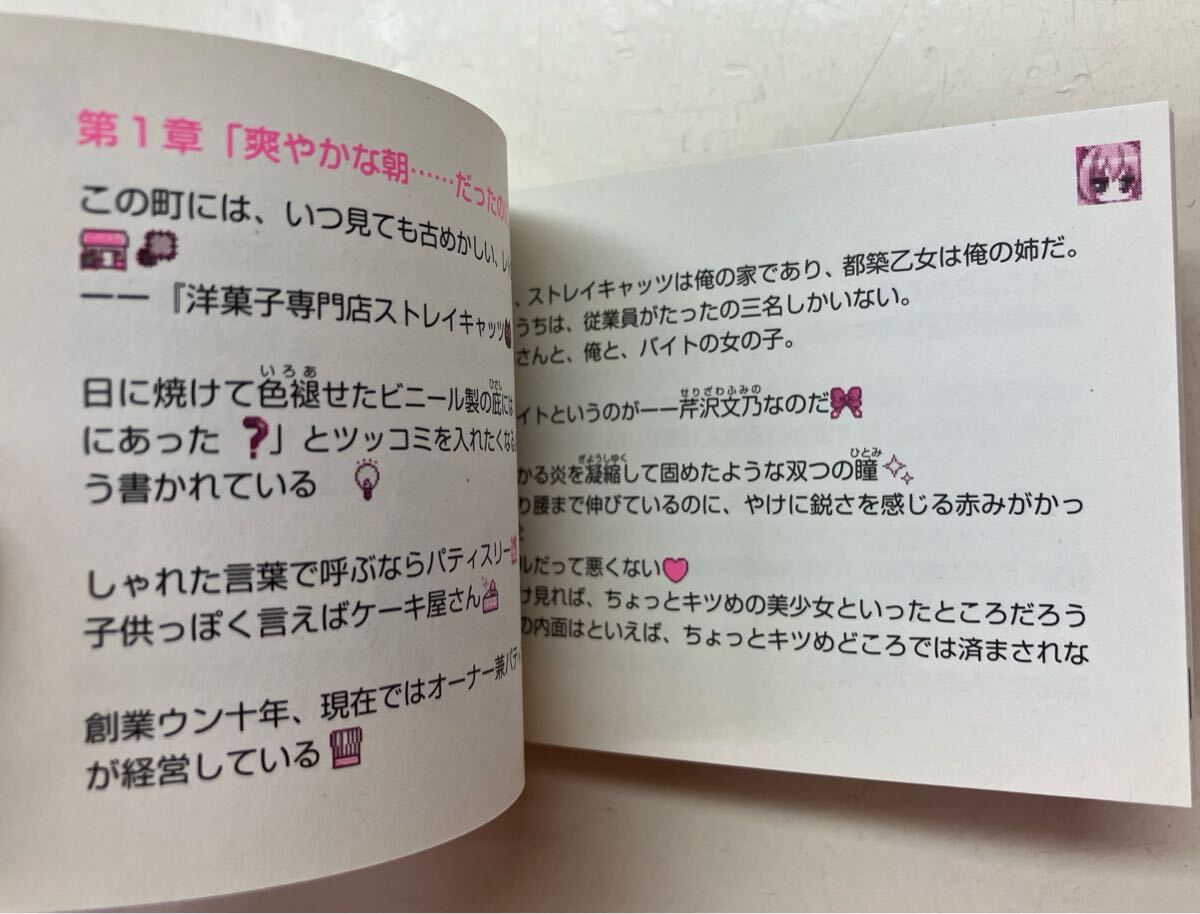 第1章「爽やかな朝……だったの
この町には、いつ見ても古めかしい、レ
――『洋菓子専門店ストレイキャッツ
いろあ ひさし
日に焼けて色褪せたビニール製の庇には
にあった？」とツッコミを入れたくなる
う書かれている
しゃれた言葉で呼ぶならパティスリー
子供っぽく言えばケーキ屋さん
創業ウン十年、現在ではオーナー兼パテ
が経営している
、ストレイキャッツは俺の家であり、都築乙女は俺の姉だ。
うちは、従業員がたったの三名しかいない。
さんと、俺と、バイトの女の子。
せりざわふみの
イトというのが――芹沢文乃なのだ
ぎょうしゆく ひとみ
かる炎を凝縮して固めたような双つの瞳
り腰まで伸びているのに、やけに鋭さを感じる赤みがかっ
ルだって悪くない
け見れば、ちょっとキツめの美少女といったところだろう
の内面はといえば、ちょっとキツめどころでは済まされな